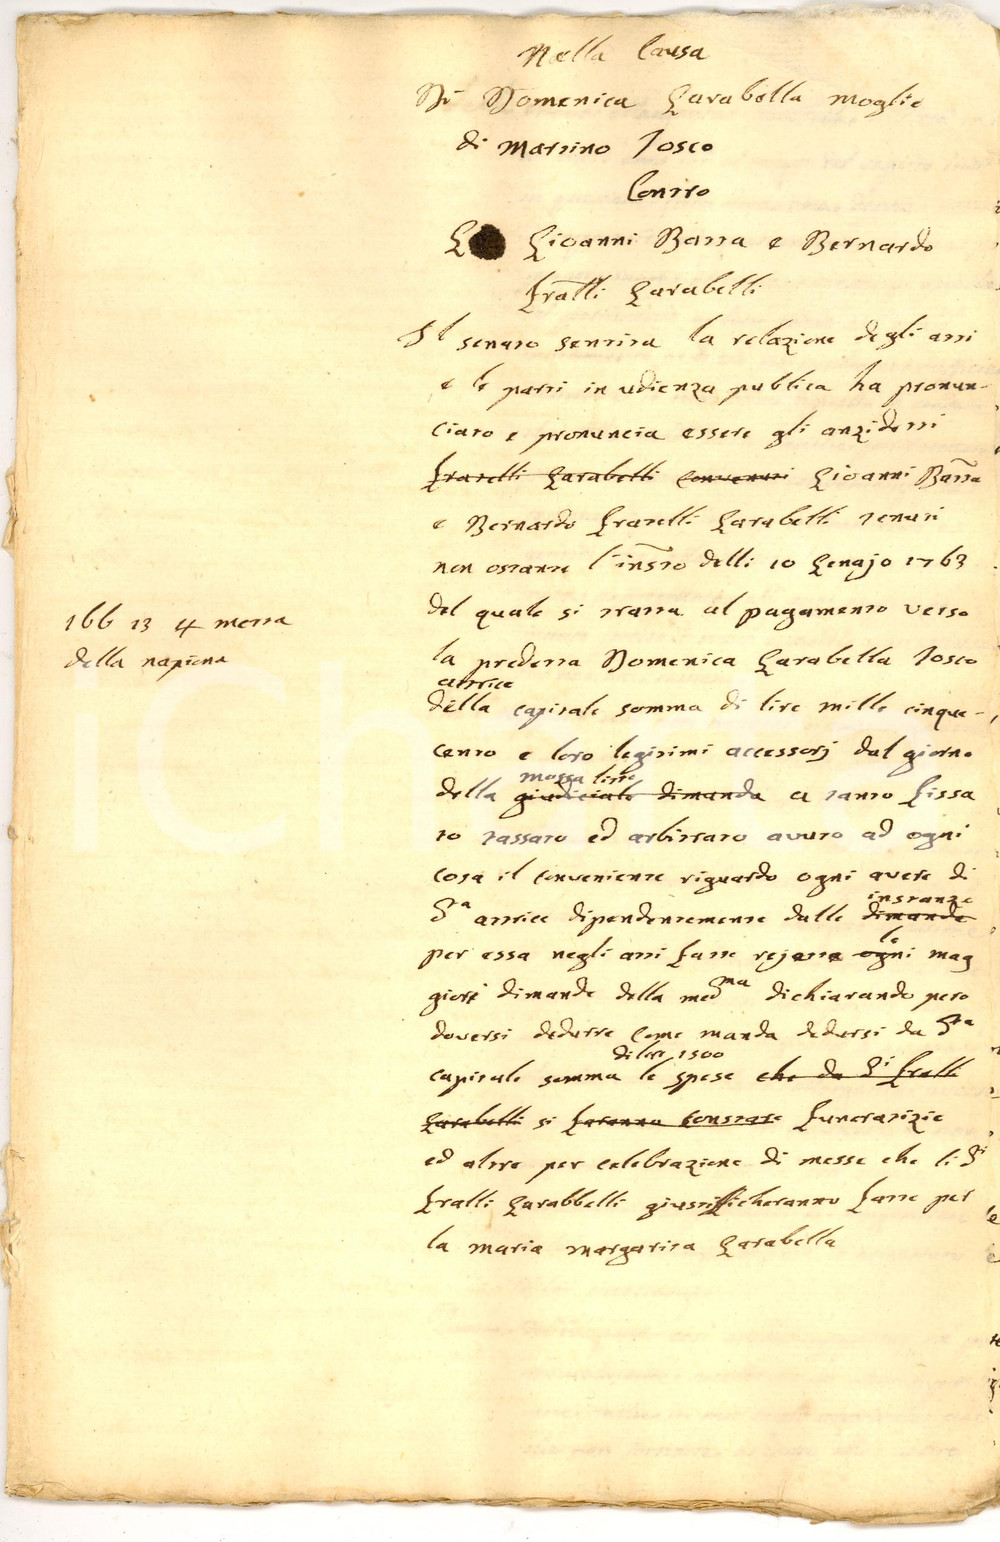 Nella Causa
Di Domenica Garabella moglie
di Martino Tosco
Contro
G Gioanni Batta e Bernardo
fratlli Garabelli
Il senato sentita la relazione degli atti
e le parti in udienza publica ha pronun-
ciato e pronuncia essere gli anzidetti
fratelli Garabelli convenuti Gioanni Batta
e Bernardo fratelli Garabelli tenuti
non ostante l'instro delli 10 Genajo 1763
del quale si tratta al pagamento verso
la predetta Domenica Garabella Tosco
attrice
della capitale somma di lire mille cinque-
cento e loro legitimi accessorj dal giorno
mossa litte
della giudiciale dimanda a tanto fissa
to tassato ed arbitrato avuto ad ogni
cosa il conveniente riguardo ogni avere di
instanze
da attrice dipendentemente dalle dimande
per essa negli atti fatte rejette ogni le mag
giori dimande della medma dichiarando pero
doversi dedurre come manda dedursi da da
di lire 1500
capitale somma le spese che da di fratlli
Garabelli si faranno constare funeratizie
ed altre per celebrazione di messe che li di
fratlli Garabbelli giustifficheranno fatte per
la maria margarita Garabella
166 13 4 metta
della